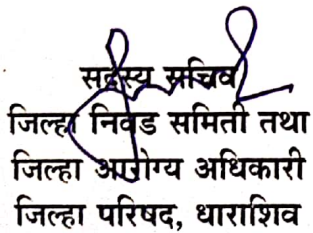 सदस्य सचिव
जिल्हा निवड समिती तथा
जिल्हा आरोग्य अधिकारी
जिल्हा परिषद, धाराशिव